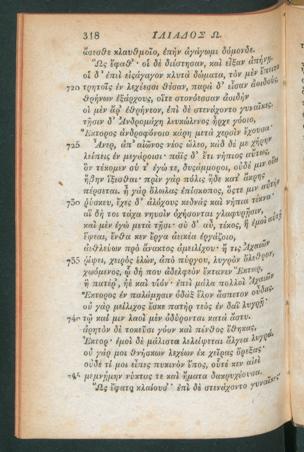 318 ΙΛΙΑΔΟΣ Ω.
ἄσεσθε κλαυθμοῖο, ἐπὴν ἀγάγωμι δόμονδε.
Ὣς ἔφαθ᾽· οἱ δὲ διέστησαν, καὶ εἶξαν ἀπήνῃ.
οἱ δ᾽ ἐπεὶ εἰσάγαγον κλυτὰ δώματα, τὸν μὲν ἔπειτα
720 τρητοῖς ἐν λεχέεσσι θέσαν, παρὰ δ᾽ εἷσαν ἀοιδοὺς,
θρήνων ἐξάρχους, οἵτε στονόεσσαν ἀοιδὴν
οἱ μὲν ἄρ᾽ ἐθρήνεον, ἐπὶ δὲ στενάχοντο γυναῖκες.
τῇσιν δ᾽ Ἀνδρομάχη λευκώλενος ἦρχε γόοιο,
Ἕκτορος ἀνδροφόνοιο κάρη μετὰ χερσὶν ἔχουσα·
725 Ἄνερ, ἀπ᾽ αἰῶνος νέος ὤλεο, καδ δέ με χήρην
λείπεις ἐν μεγάροισι· παῖς δ᾽ ἔτι νήπιος αὔτως,
ὃν τέκομεν σύ τ᾽ ἐγώ τε, δυσάμμοροι, οὐδέ μιν οἴω
ἥβην ἵξεσθαι· πρὶν γὰρ πόλις ἥδε κατ᾽ ἄκρης
πέρσεται. ἦ γὰρ ὄλωλας ἐπίσκοπος, ὅστε μιν αὐτὴν
730 ῥύσκευ, ἔχες δ᾽ ἀλόχους κεδνὰς καὶ νήπια τέκνα·
αἳ δή τοι τάχα νηυσὶν ὀχήσονται γλαφυρῇσιν,
καὶ μὲν ἐγὼ μετὰ τῇσι· σὺ δ᾽ αὖ, τέκος, ἢ ἐμοὶ αὐτῇ
ἕψεαι, ἔνθα κεν ἔργα ἀεικέα ἐργάζοιο,
ἀεθλεύων πρὸ ἄνακτος ἀμειλίχου· ἤ τις Ἀχαιῶν
735 ῥίψει, χειρὸς ἑλὼν, ἀπὸ πύργου, λυγρὸν ὄλεθρον,
χωόμενος, ᾧ δή που ἀδελφεὸν ἔκτανεν Ἕκτωρ,
ἢ πατέρ᾽, ἠὲ καὶ υἱόν· ἐπεὶ μάλα πολλοὶ Ἀχαιῶν
Ἕκτορος ἐν παλάμῃσιν ὀδὰξ ἕλον ἄσπετον οὖδας.
οὐ γὰρ μείλιχος ἔσκε πατὴρ τεὸς ἐν δαῒ λυγρῇ·
740 τῷ καί μιν λαοὶ μὲν ὀδύρονται κατὰ ἄστυ.
ἀρητὸν δὲ τοκεῦσι γόον καὶ πένθος ἔθηκας,
Ἕκτορ· ἐμοὶ δὲ μάλιστα λελείψεται ἄλγεα λυγρά.
οὐ γάρ μοι θνήσκων λεχέων ἐκ χεῖρας ὄρεξας·
οὐδέ τί μοι εἶπες πυκινὸν ἔπος, οὗτέ κεν αἰεὶ
745 μεμνήμην νύκτας τε καὶ ἤματα δακρυχέουσα.
Ὣς ἔφατο κλαίουσ᾽· ἐπὶ δὲ στενάχοντο γυναῖκες·